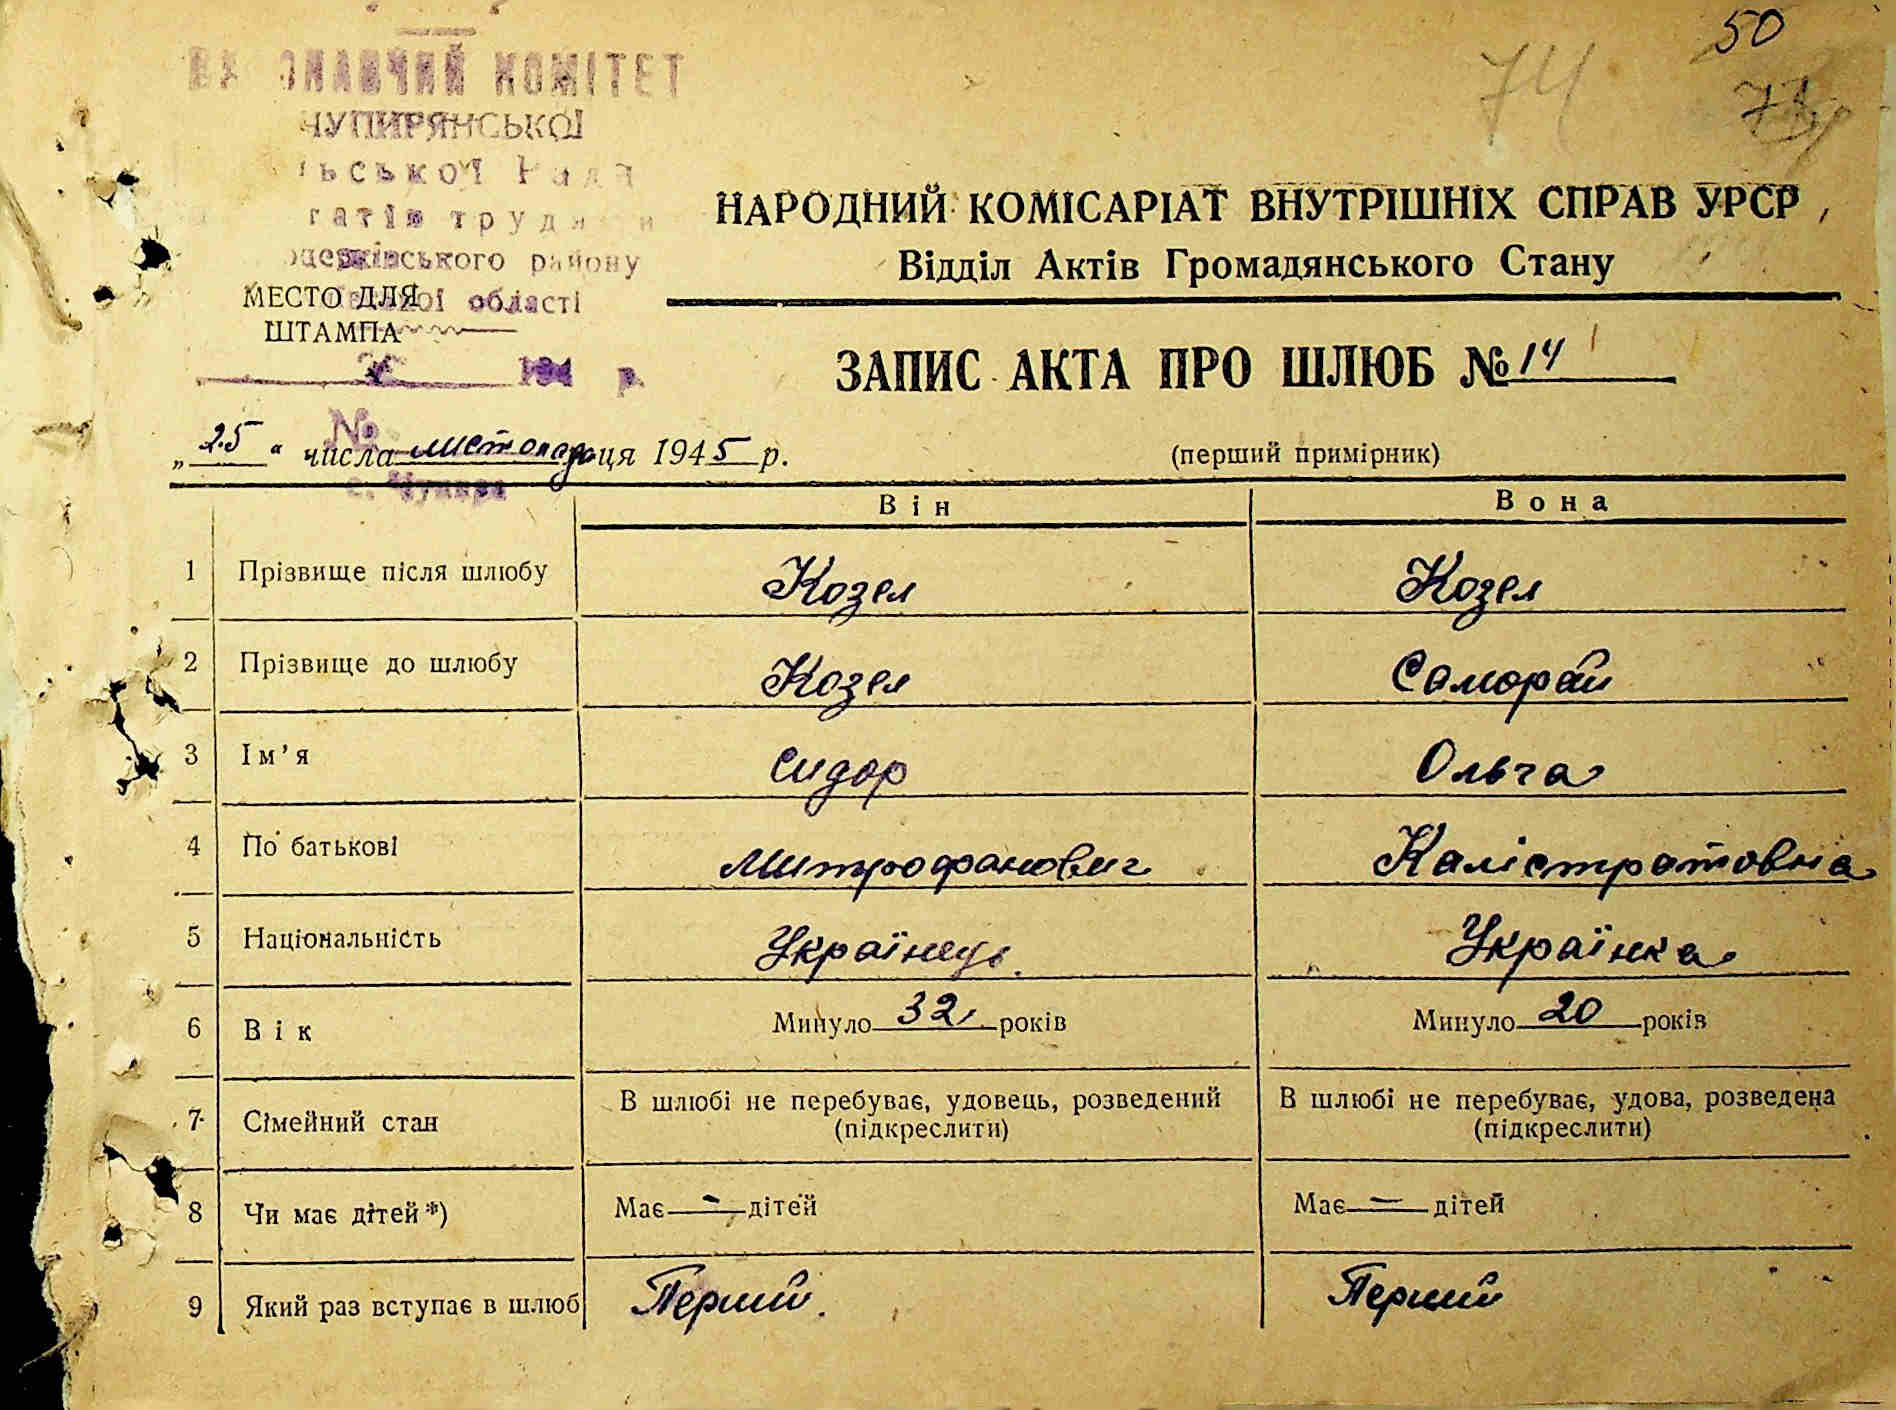 50
74
КОМІТЕТ
ЧУПИРЯНСЬКОЇ
району
області
НАРОДНИЙ КОМІСАРІАТ ВНУТРІШНІХ СПРАВ УРСР
Відділ Актів Громадянського Стану
МЕСТО ДЛЯ
ШТАМПА
194 р.
ЗАПИС АКТА ПРО ШЛЮБ № 14
№
„25“ числа листопада місяця 1945 р.
(перший примірник)
с. Чупира
Він Вона
1 Прізвище після шлюбу Козел Козел
2 Прізвище до шлюбу Козел Саморай
3 Ім'я Сидор Ольга
4 По батькові Митрофанович Калістратовна
5 Національність Українець. Українка
6 Вік Минуло 32 років Минуло 20 років
7 Сімейний стан В шлюбі не перебуває, удовець, розведений (підкреслити) В шлюбі не перебуває, удова, розведена (підкреслити)
8 Чи має дітей*) Має — дітей Має — дітей
9 Який раз вступає в шлюб Перший. Перший